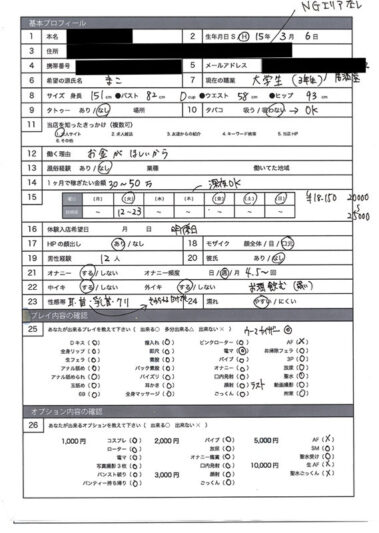 NGエリアなし
基本プロフィール
1 本名 2 生年月日 S H 15年 3月 6日
3 住所
4 携帯番号 5 メールアドレス
6 希望の源氏名 まこ 7 現在の職業 大学生
8 サイズ 身長 151cm ●バスト 82cm Dcup ●ウエスト 58cm ●ヒップ 93cm
9 タトゥー あり/なし 場所 10 タバコ 吸う/吸わない →OK
11 当店を知ったきっかけ(複数可)
1.求人サイト 2.求人雑誌 3.友達からの紹介 4.キーワード検索 5.当店HP
6.その他
12 働く理由 お金がほしいから
13 風俗経験 あり/なし 業種 働いてた地域
14 1ヶ月で稼ぎたい金額 30〜50万
15 曜日 (月) (火) (水) (木) (金) (土) (日) ¥18.150 20000
時間帯 12〜23 25000
16 体験入店希望日 月 日
17 HPの顔出し あり/なし 18 モザイク 顔全体/目/口元
19 男性経験 12人 20 彼氏 あり/なし
21 オナニー する/しない オナニー頻度 日/週/月 4.5〜回
22 中イキ する/しない 外イキ する/しない
23 性感帯 耳、首、乳首、クリ 24 濡れ やすい/にくい
プレイ内容の確認
25 あなたが出来るプレイを教えて下さい(出来る○ 多分出来る△ 出来ない×)
Dキス 指入れ ピンクローター AF (×)
全身リップ 即尺 電マ お掃除フェラ
生フェラ 素股 バイブ 3P
アナル舐め バック素股 オナニー 放尿
アナル舐められ パイズリ 口内発射 聖水
玉舐め 耳かき 顔射 動画撮影
69 全身マッサージ ごっくん
オプション内容の確認
26 あなたが出来るオプションを教えて下さい(出来る○ 出来ない×)
1,000円 コスプレ (○) 2,000円 バイブ (○) 5,000円 AF (×)
ローター (○) 放尿 (○) SM (○)
電マ (○) オナニー鑑賞 (○) 聖水受け (○)
写真撮影3枚 (○) 口内発射 (○) 10,000円 生AF (×)
パンスト破り (○) 3,000円 顔射 (○) 聖水ごっくん (×)
パンティー持ち帰り (○) ごっくん (○)